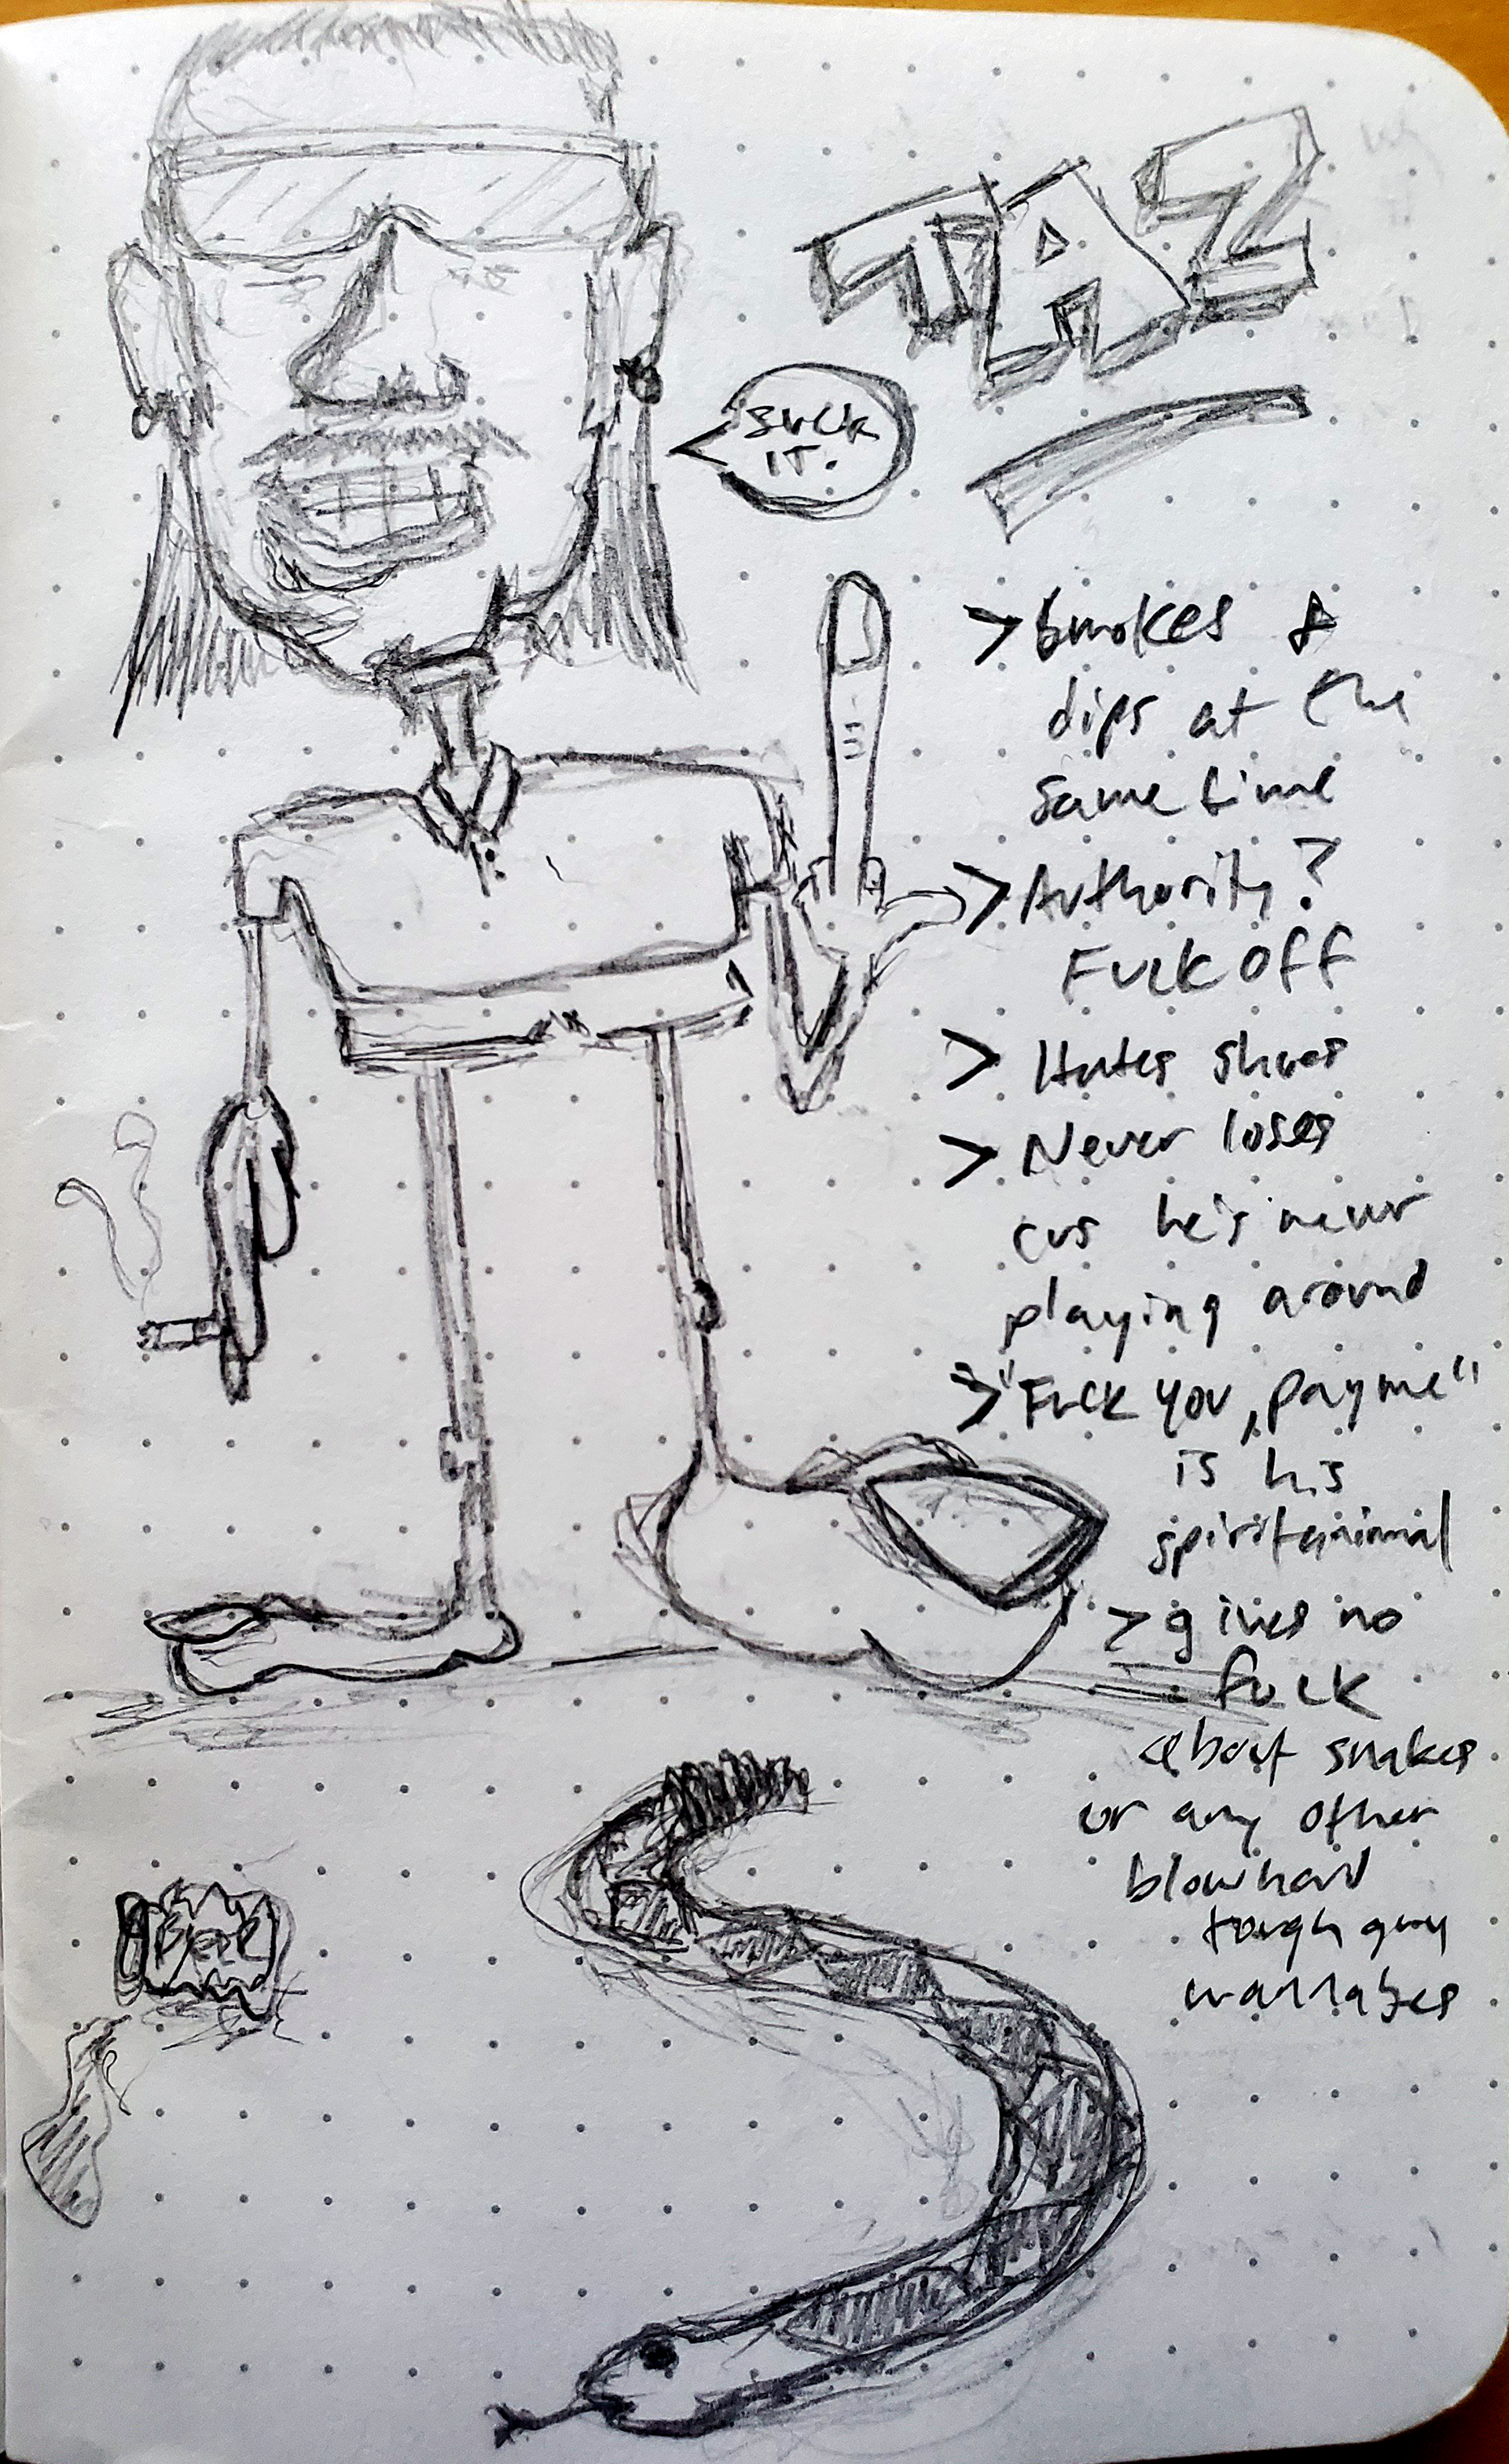 TAZ
SUCK
IT.
> Smokes &
dips at the
same time
> Authority?
Fuck off
> Hates shoes
> Never loses
cus he's never
playing around
> "Fuck you, pay me"
is his
spirit animal
> gives no
fuck
about snakes
or any other
blowhard
tough guy
wannabes
Beer